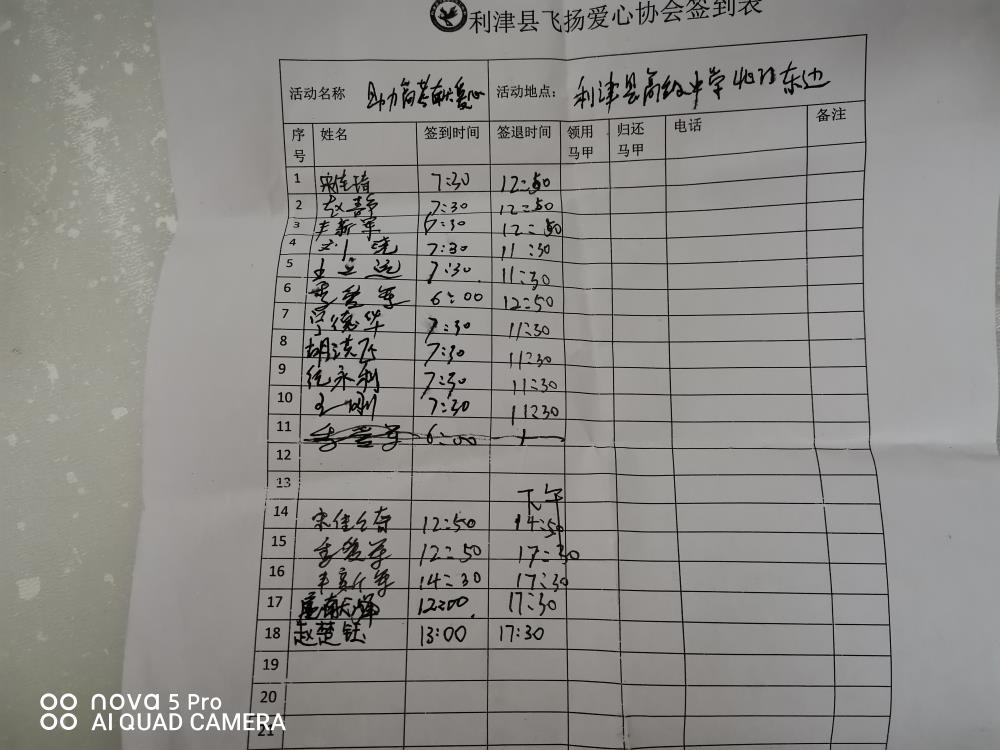 利津县飞扬爱心协会签到表
活动名称 助力高考献爱心 活动地点: 利津县高级中学 东边
序号 姓名 签到时间 签退时间 领用马甲 归还马甲 电话 备注
1 7:30 12:50
2 赵静 7:30 12:50
3 丰新军 6:30 12:50
4 7:30 11:30
5 7:30 11:30
6 6:00 12:50
7 德华 7:30 11:30
8 胡 7:30 11:30
9 永利 7:30 11:30
10 王 7:30 11:30
11 6:00
12
13
下午
14 宋佳 12:50 14:50
15 12:50 17:30
16 丰新军 14:30 17:30
17 12:00 17:30
18 赵楚钰 13:00 17:30
19
20
21
nova 5 Pro
AI QUAD CAMERA